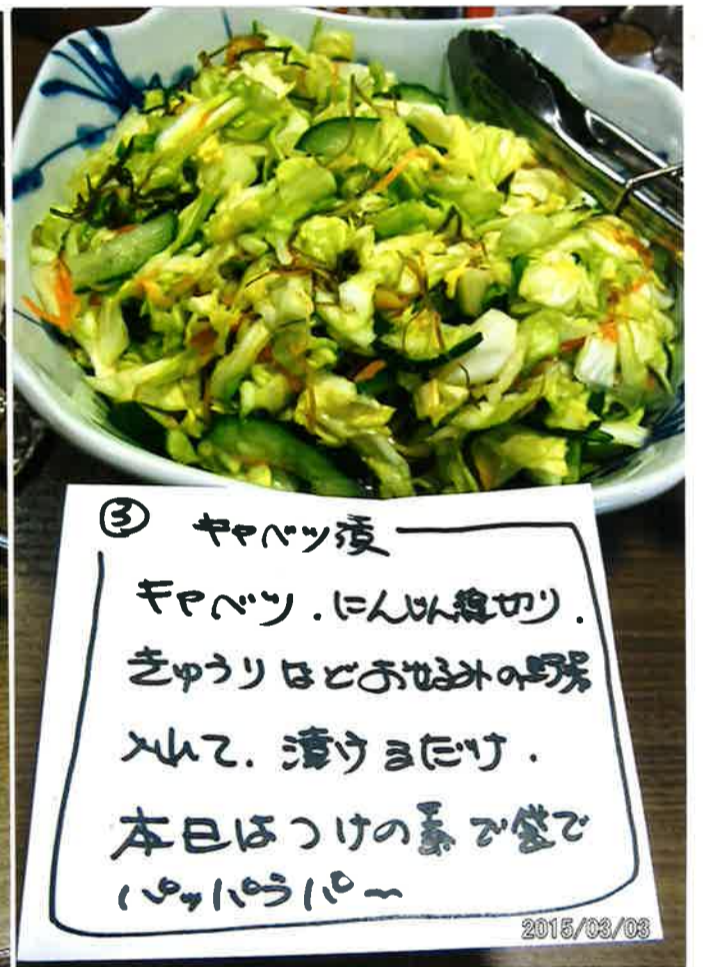 ③ キャベツ漬
キャベツ.にんじん線切り.
きゅうりなどおせるみの野菜
入れて.漬けるだけ.
本日はつけの素で袋で
パッパラパ〜
2015/03/03